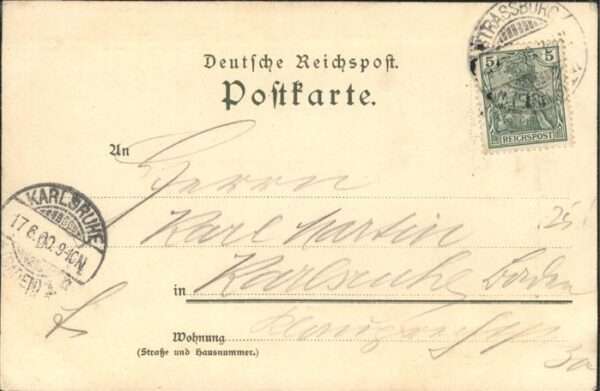 STRASSBURG
5 5
REICHSPOST
Deutsche Reichspost.
Postkarte.
An
Herrn
Karl Martin
KARLSRUHE
17.6.00.9-10N.
in Karlsruhe Baden
Wohnung
(Straße und Hausnummer.)